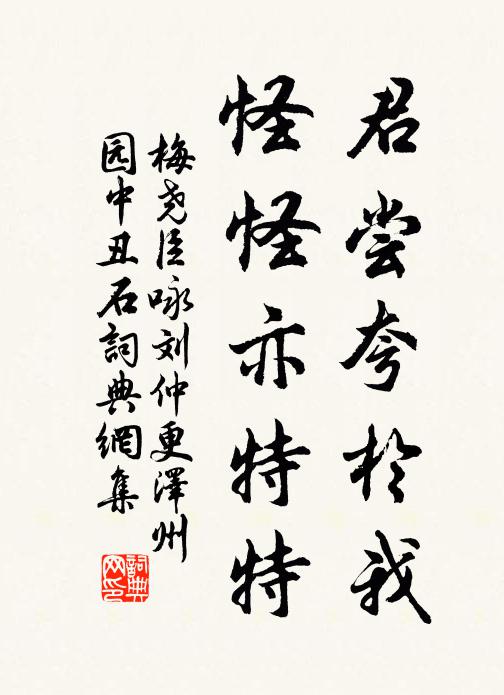 君尝夸於我
怪怪亦特特
梅尧臣咏刘仲更泽州
园中丑石詞典網集
詞典
网印